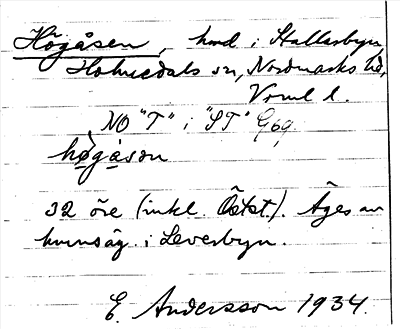 Högåsen, hmd i Stallarbyn,
Holmedals sn, Nordmarks hd,
Vrml l.
NO "T" i "ST" 9/69
høgåsən
32 öre (inkl. Östst.). Äges av
hemmsäg. i Leverbyn.
E. Andersson 1934.